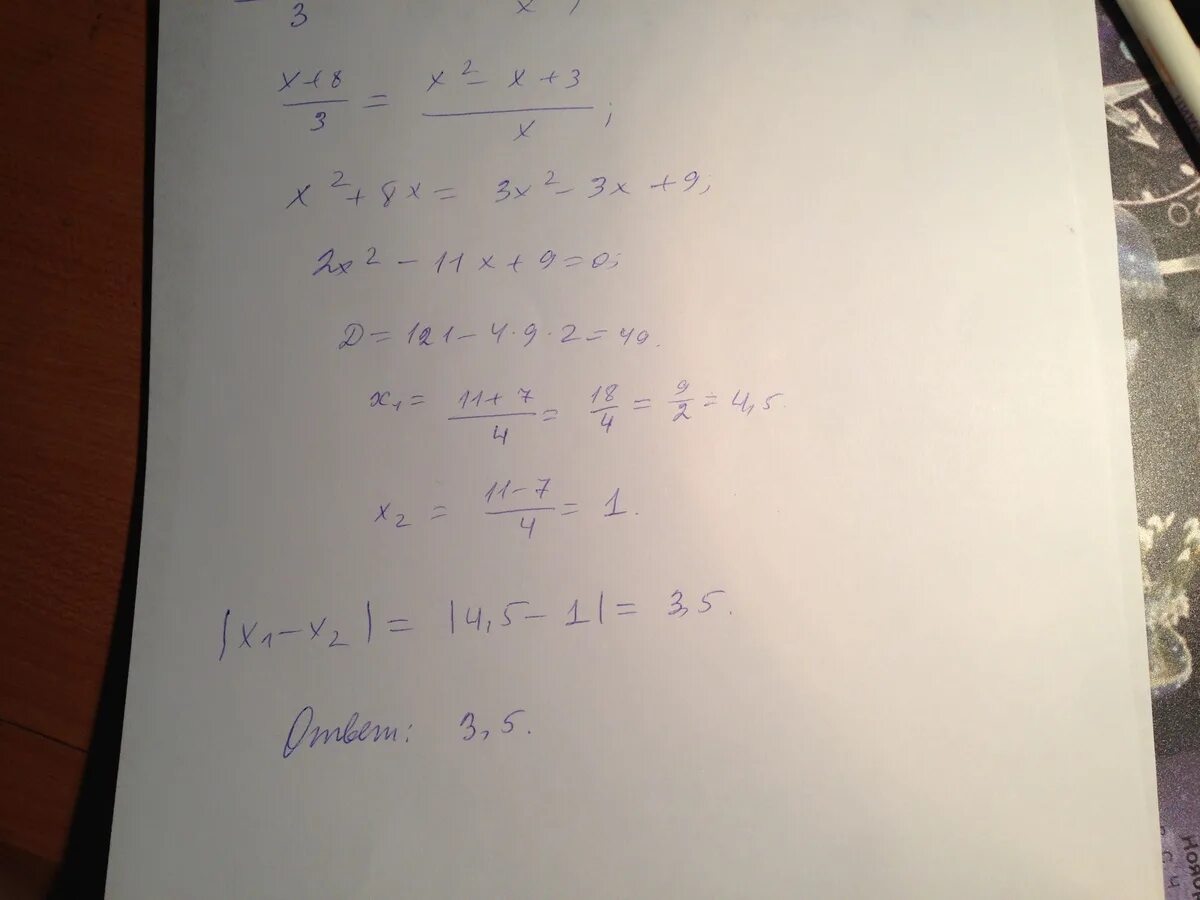 3 x ;
x+8/3 = x² - x + 3/x ;
x² + 8x = 3x² - 3x + 9;
2x² - 11x + 9 = 0;
Д = 121 - 4·9·2 = 49.
x₁ = 11+7/4 = 18/4 = 9/2 = 4,5.
x₂ = 11-7/4 = 1.
|x₁ - x₂| = |4,5 - 1| = 3,5.
Ответ: 3,5.